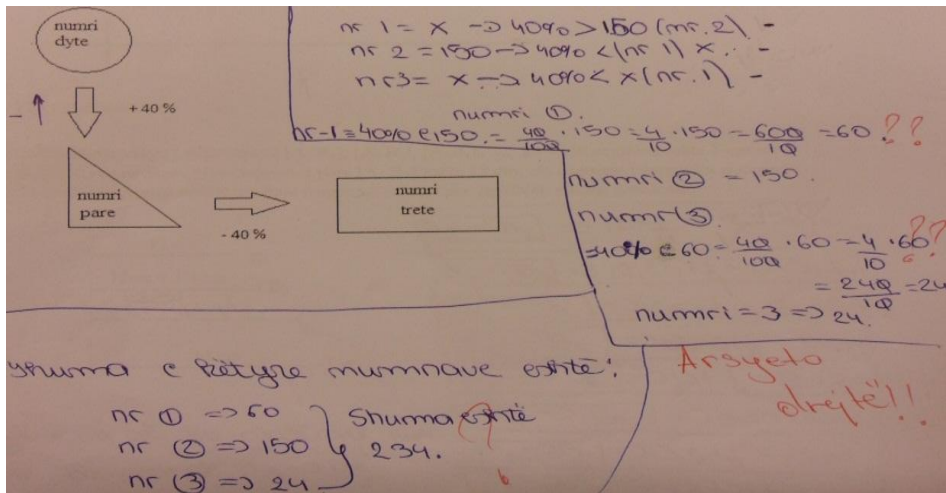 numri
dyte
+40 %
numri
pare
- 40 %
numri
trete
nr 1 = x -> 40% > 150 (nr. 2) -
nr 2 = 150 -> 40% < (nr 1) x. -
nr3 = x -> 40% < x (nr. 1) -
numri ①.
nr-1 = 40% e 150. = 40/100 · 150 = 4/10 · 150 = 600/10 = 60. ??
numri ② = 150.
numri ③
=40% e 60 = 40/100 · 60 = 4/10 · 60 ??
= 240/10 = 24
numri = 3 => 24.
shuma e këtyre numrave eshtë:
nr ① => 60
nr ② => 150
nr ③ => 24
Shuma eshtë
234.
Arsyeto
drejtë!!